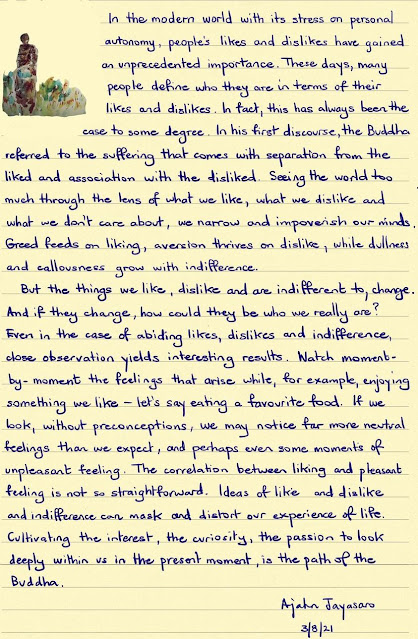 In the modern world with its stress on personal
autonomy, people's likes and dislikes have gained
an unprecedented importance. These days, many
people define who they are in terms of their
likes and dislikes. In fact, this has always been the
case to some degree. In his first discourse, the Buddha
referred to the suffering that comes with separation from the
liked and association with the disliked. Seeing the world too
much through the lens of what we like, what we dislike and
what we don't care about, we narrow and impoverish our minds.
Greed feeds on liking, aversion thrives on dislike, while dullness
and callousness grow with indifference.
But the things we like, dislike and are indifferent to, change.
And if they change, how could they be who we really are?
Even in the case of abiding likes, dislikes and indifference,
close observation yields interesting results. Watch moment-
by-moment the feelings that arise while, for example, enjoying
something we like – let's say eating a favourite food. If we
look, without preconceptions, we may notice far more neutral
feelings than we expect, and perhaps even some moments of
unpleasant feeling. The correlation between liking and pleasant
feeling is not so straightforward. Ideas of like and dislike
and indifference can mask and distort our experience of life.
Cultivating the interest, the curiosity, the passion to look
deeply within us in the present moment, is the path of the
Buddha.
Ajahn Jayasaro
3/8/21